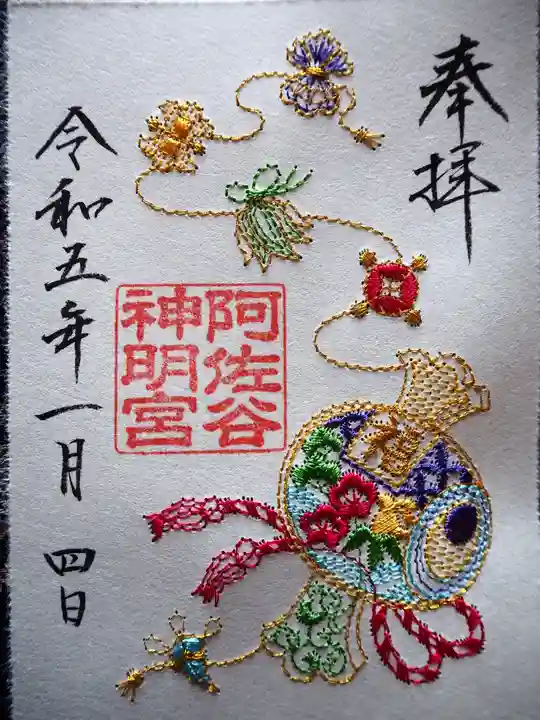 奉拝
阿佐谷
神明宮
令和五年一月四日